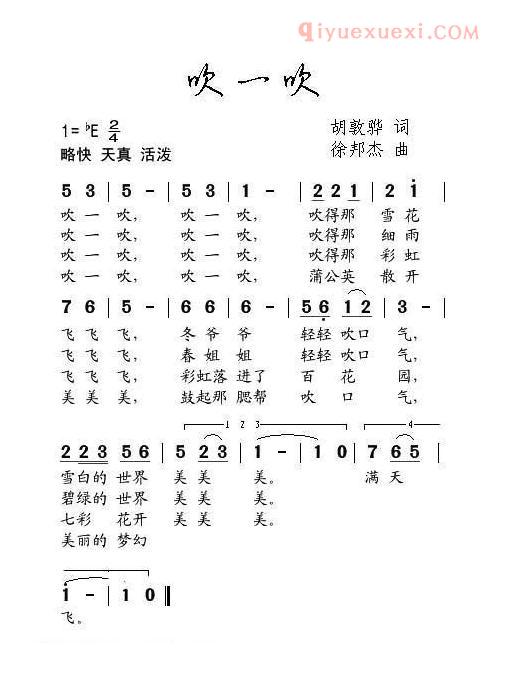 qiyuexuexi.com
吹一吹
1=♭E 2/4
胡敦骅 词
略快 天真 活泼
徐邦杰 曲
5 3 | 5 - | 5 3 | 1 - | 2 2 1 | 2 i |
吹一 吹, 吹一 吹, 吹得那 雪花
吹一 吹, 吹一 吹, 吹得那 细雨
吹一 吹, 吹一 吹, 吹得那 彩虹
吹一 吹, 吹一 吹, 蒲公英 散开
7 6 | 5 - | 6 6 | 6 - | 5 6 1 2 | 3 - |
飞飞 飞, 冬爷 爷 轻轻 吹口 气,
飞飞 飞, 春姐 姐 轻轻 吹口 气,
飞飞 飞, 彩虹落 进了 百花 园,
美美 美, 鼓起那 腮帮 吹口 气,
1 2 3
4
2 2 3 5 6 | 5 2 3 | 1 - | 1 0 | 7 6 5 |
雪白的 世界 美美 美。 满天
碧绿的 世界 美美 美。
七彩 花开 美美 美。
美丽的 梦幻
i - | i 0 ‖
飞。